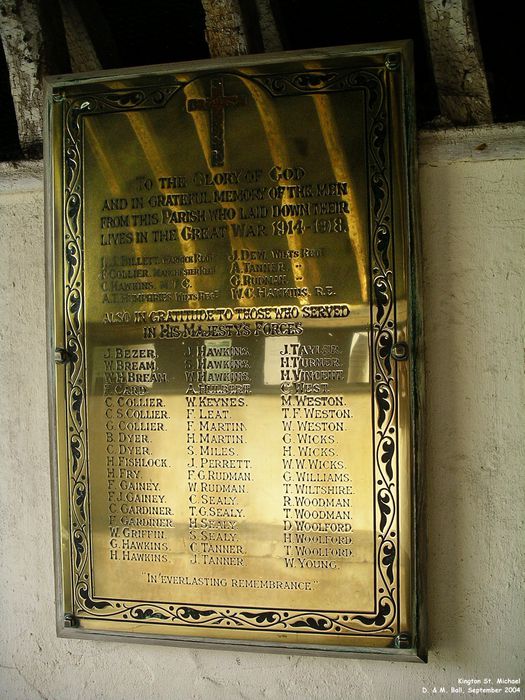 TO THE GLORY OF GOD
AND IN GRATEFUL MEMORY OF THE MEN
FROM THIS PARISH WHO LAID DOWN THEIR
LIVES IN THE GREAT WAR 1914-1918.
BILLETT, WARWICK REGT J. DEW, WILTS REGT
F. COLLIER, MANCHESTER REGT A. TANNER
C. HAWKINS, M.G.C. G. RUDMAN
A.T. HUMPHRIES, WILTS REGT W.C. HAWKINS, R.E.
ALSO IN GRATITUDE TO THOSE WHO SERVED
IN HIS MAJESTY'S FORCES
J. BEZER. J. HAWKINS. J. TAYLER.
W. BREAM. S. HAWKINS. H. TURNER.
W.H. BREAM. W. HAWKINS. H. VINCENT.
CARD. C. WEST.
C. COLLIER. W. KEYNES. M. WESTON.
C.S. COLLIER. F. LEAT. T.F. WESTON.
G. COLLIER. F. MARTIN. W. WESTON.
B. DYER. H. MARTIN. G. WICKS.
C. DYER. S. MILES. H. WICKS.
H. FISHLOCK. J. PERRETT. W.W. WICKS.
H. FRY. F.G. RUDMAN. G. WILLIAMS.
F. GAINEY. W. RUDMAN. T. WILTSHIRE.
F.J. GAINEY. C. SEALY. R. WOODMAN.
C. GARDINER. T.G. SEALY. T. WOODMAN.
F. GARDINER. H. SEALY. D. WOOLFORD.
W. GRIFFIN. S. SEALY. H. WOOLFORD.
G. HAWKINS. C. TANNER. T. WOOLFORD.
H. HAWKINS. J. TANNER. W. YOUNG.
"IN EVERLASTING REMEMBRANCE."
Kington St. Michael
D. & M. Ball, September 2004